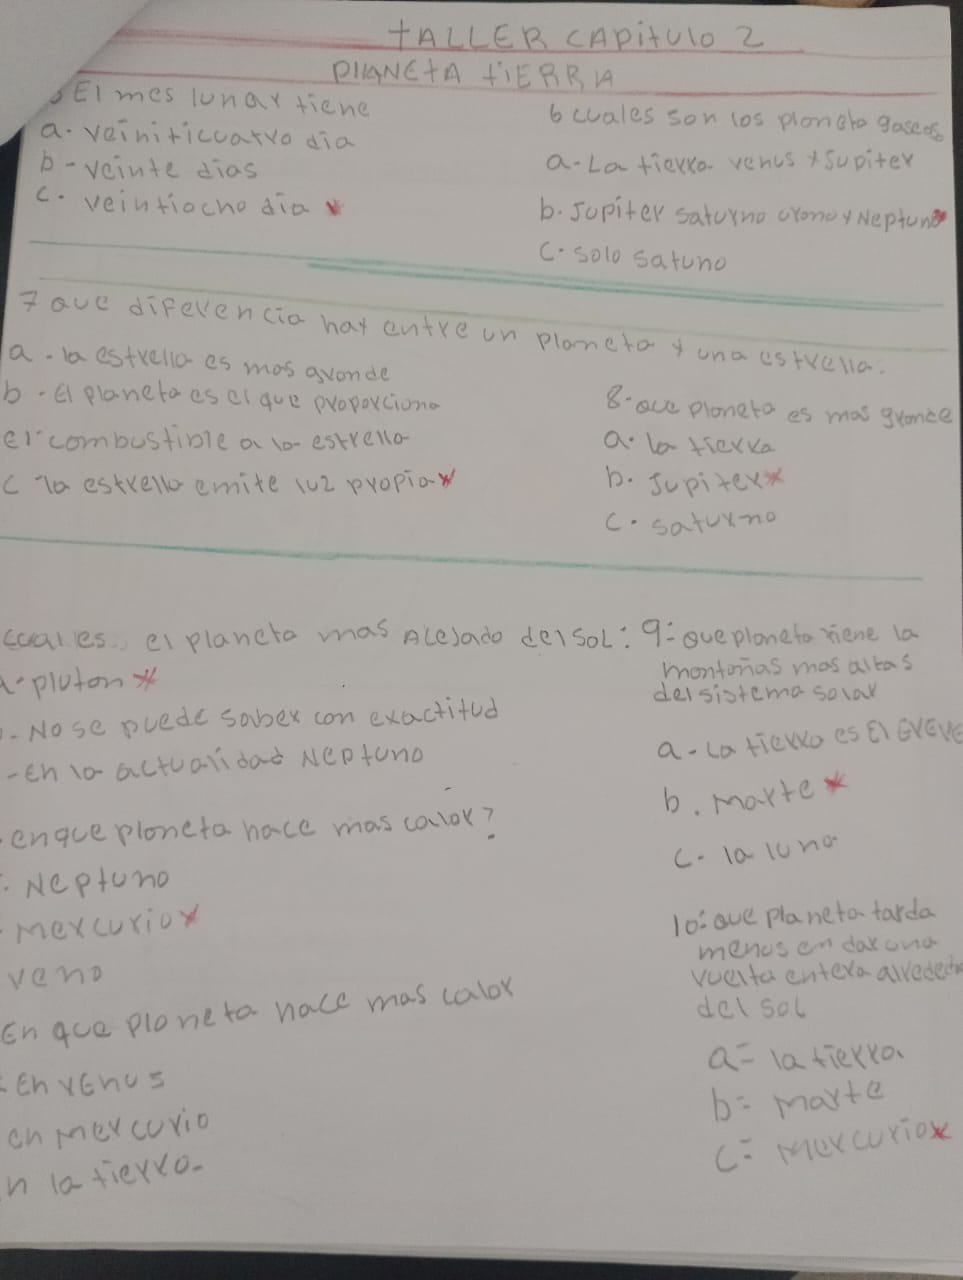 tALLER CAPitulo 2
PlANEtA tiERRA
El mes lunar tiene
a. veiniticuatro dia
b - veinte dias
c. veintiocho dia
6 cuales son los planeta gaseos
a - La tierra venus y Jupiter
b. Jupiter saturno urono y Neptuno
c. solo satuno
7 que diferencia hay entre un planeta y una estrella:
a. la estrella es mas grande
b. El planeta es el que proporciona
el combustible a la estrella
c la estrella emite luz propia
8. que planeta es mas grande
a. la tierra
b. Jupiter
c. saturno
cual es el planeta mas Alejado del SoL:
pluton
- No se puede saber con exactitud
- En la actualidad Neptuno
en que planeta hace mas calor?
Neptuno
mercurio
veno
En que planeta hace mas calor
En vEnus
en mercurio
n la tierra.
9: que planeta tiene la
montañas mas altas
del sistema solar
a - La tierra es El EVEVE
b. marte
c - la luna
10: que planeta tarda
menos en dar una
vuelta entera alrededo
del sol
a = la tierra.
b = marte
c = mercurio